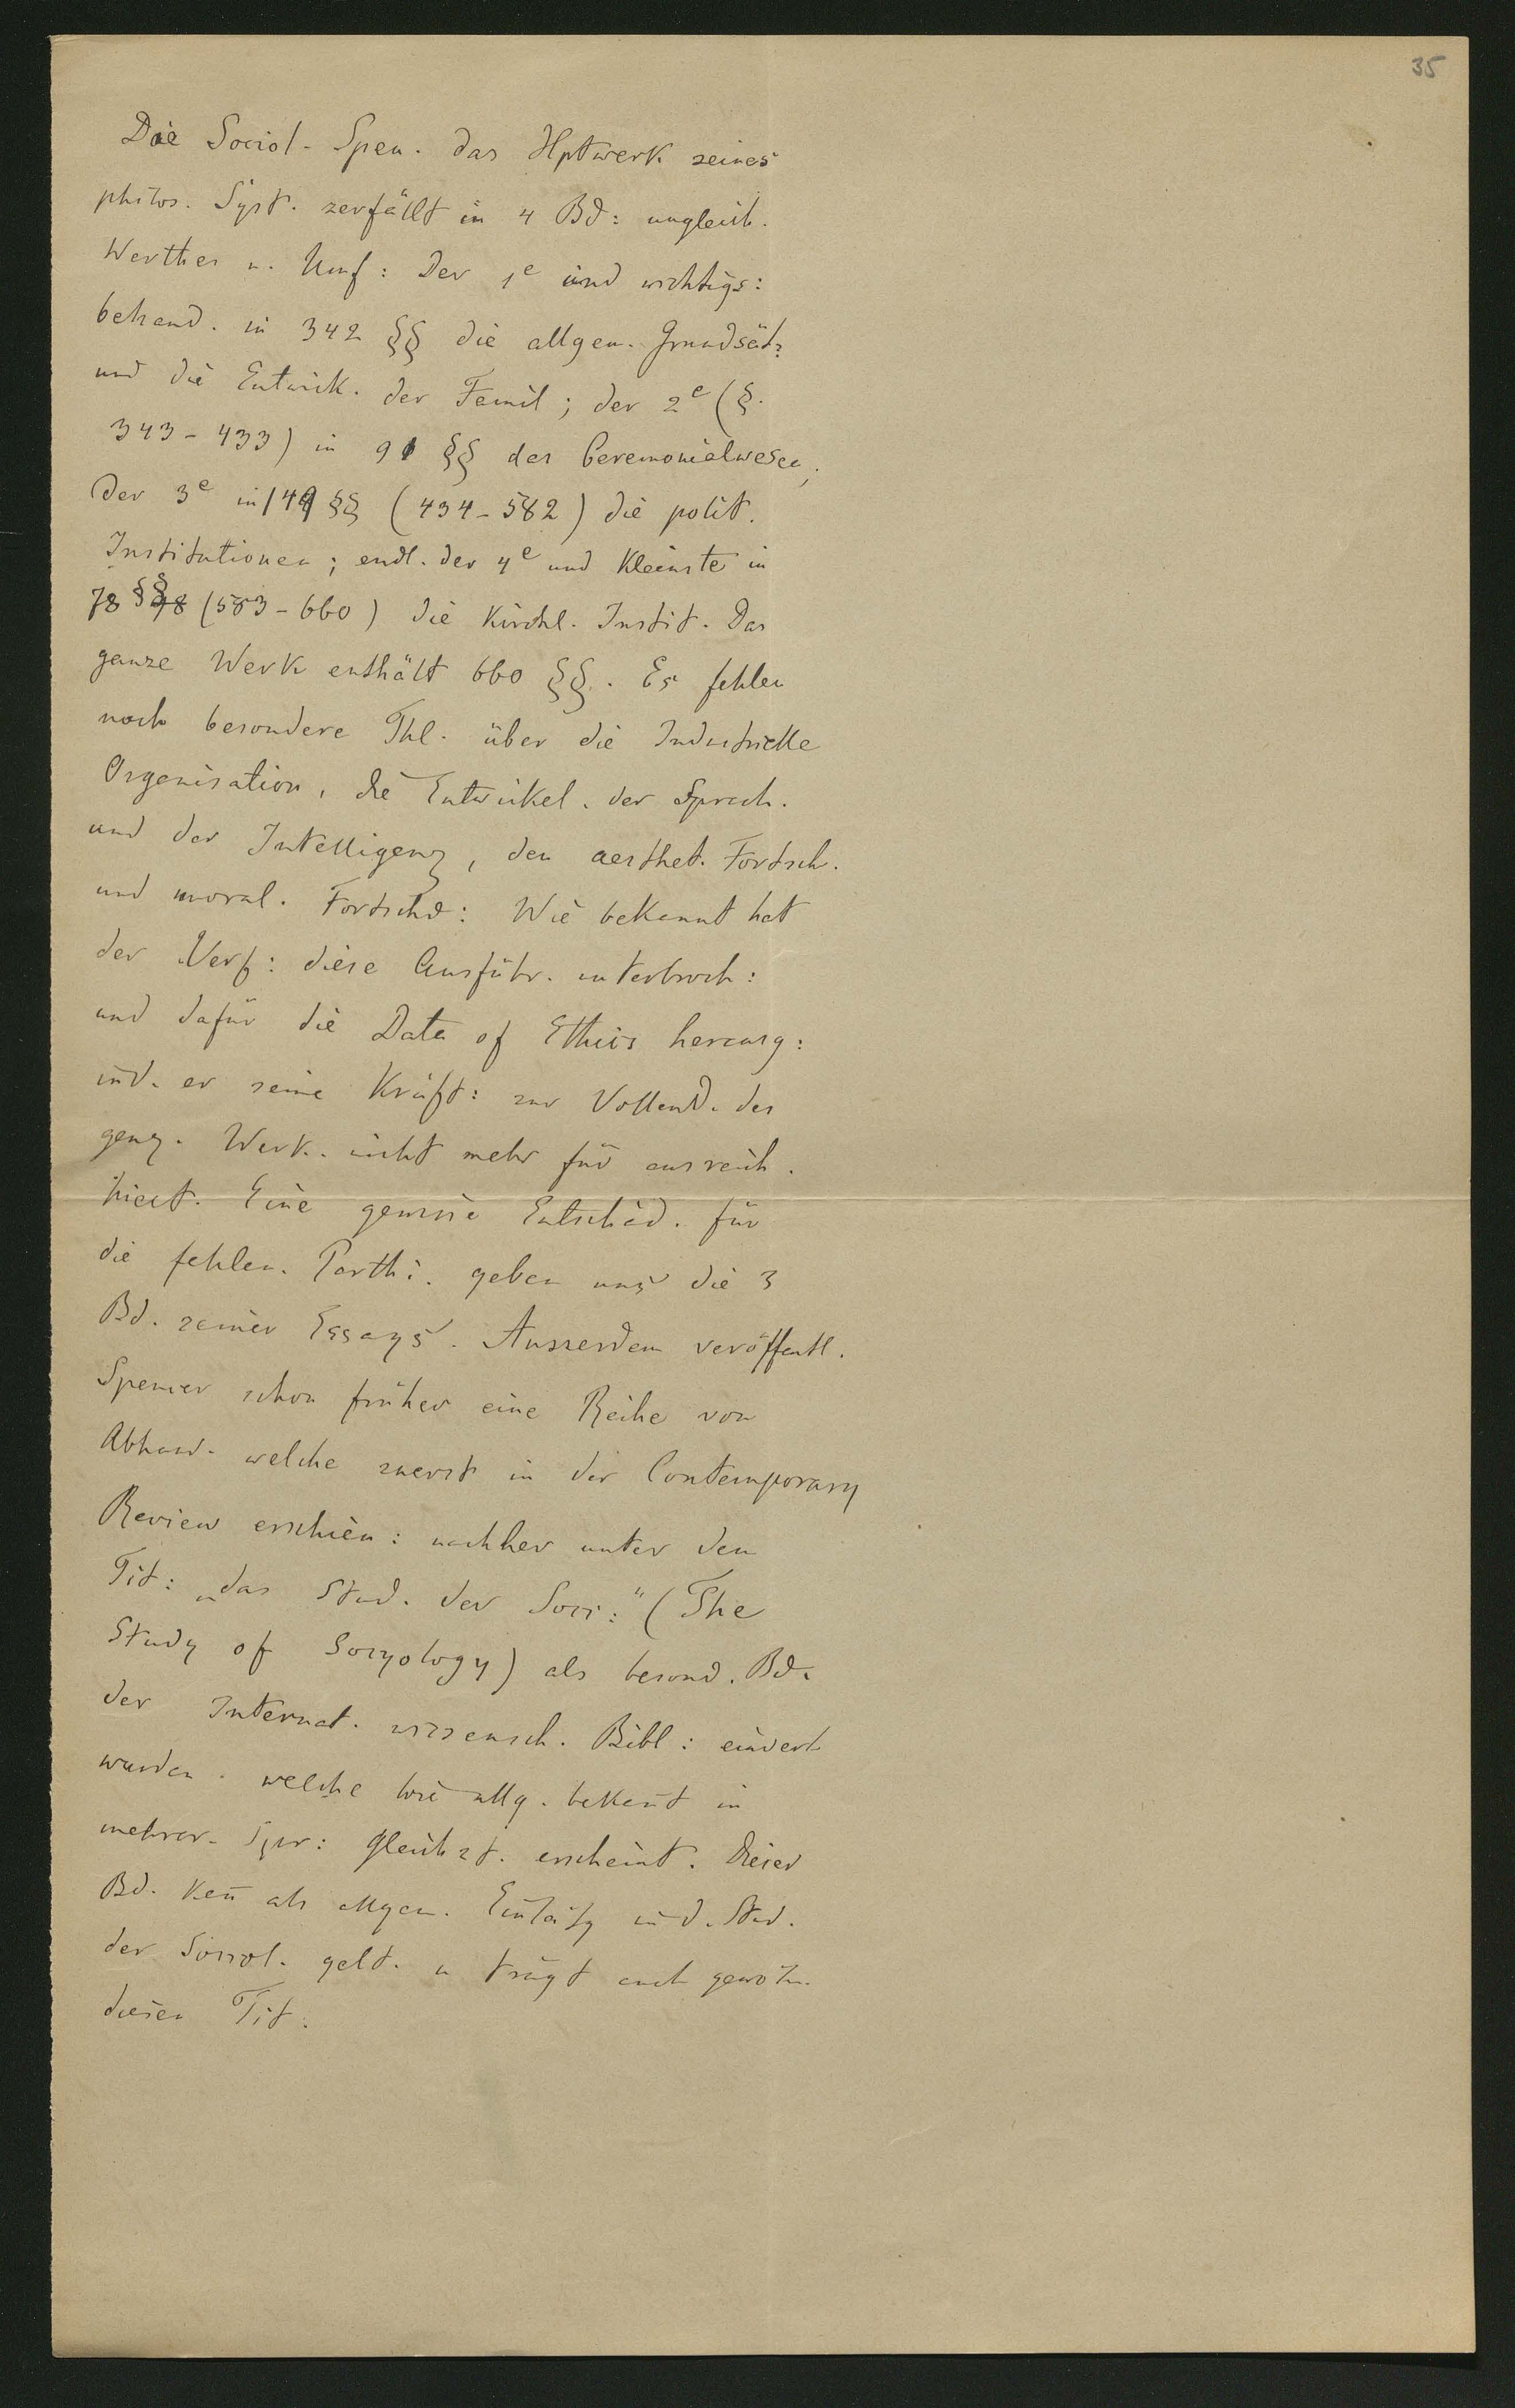 35
Die Sociol. Spen. das Hptwerk seines
philos. Syst. zerfällt in 4 Bd: ungleich.
Werthes u. Umf: Der 1e und wichtigs:
behand. in 342 §§ die allgem. Grundsätz
und die Entwick. der Famil; der 2e (§.
343-433) in 91 §§ das Ceremonialwesen;
der 3e in 149 §§ (434-582) die polit.
Institutionen; endl. der 4e und kleinste in
78 §§ (583-660) die kirchl. Instit. Das
ganze Werk enthält 660 §§. Es fehlen
noch besondere Thl. über die Industrielle
Organisation, die Entwickel. der Sprach.
und der Intelligenz, den aesthet. Fortsch.
und moral. Fortschr: Wie bekannt hat
der Verf: diese Ausführ. unterbroch:
und dafür die Data of Ethics herausg:
ind. er seine Kräft: zur Vollend. des
ganz. Werk. nicht mehr für ausreich.
hielt. Eine gewisse Entschäd. für
die fehlen. Parthi. geben uns die 3
Bd. seiner Essays. Ausserdem veröffentl.
Spencer schon früher eine Reihe von
Abhand. welche zuerst in der Contemporary
Review erschien: nachher unter dem
Tit: „das Stud. der Soci:" (The
Study of Socyology) als besond. Bd.
der Internat. wissensch. Bibl:
wurden. welche wie allg. bekañt in
mehrer. Spr: gleichzt. erscheint. Dieser
Bd. kañ als allgem. Einleitg in d. Stud.
der Sociol. gelt. u trägt auch gewöhn.
diesen Tit.